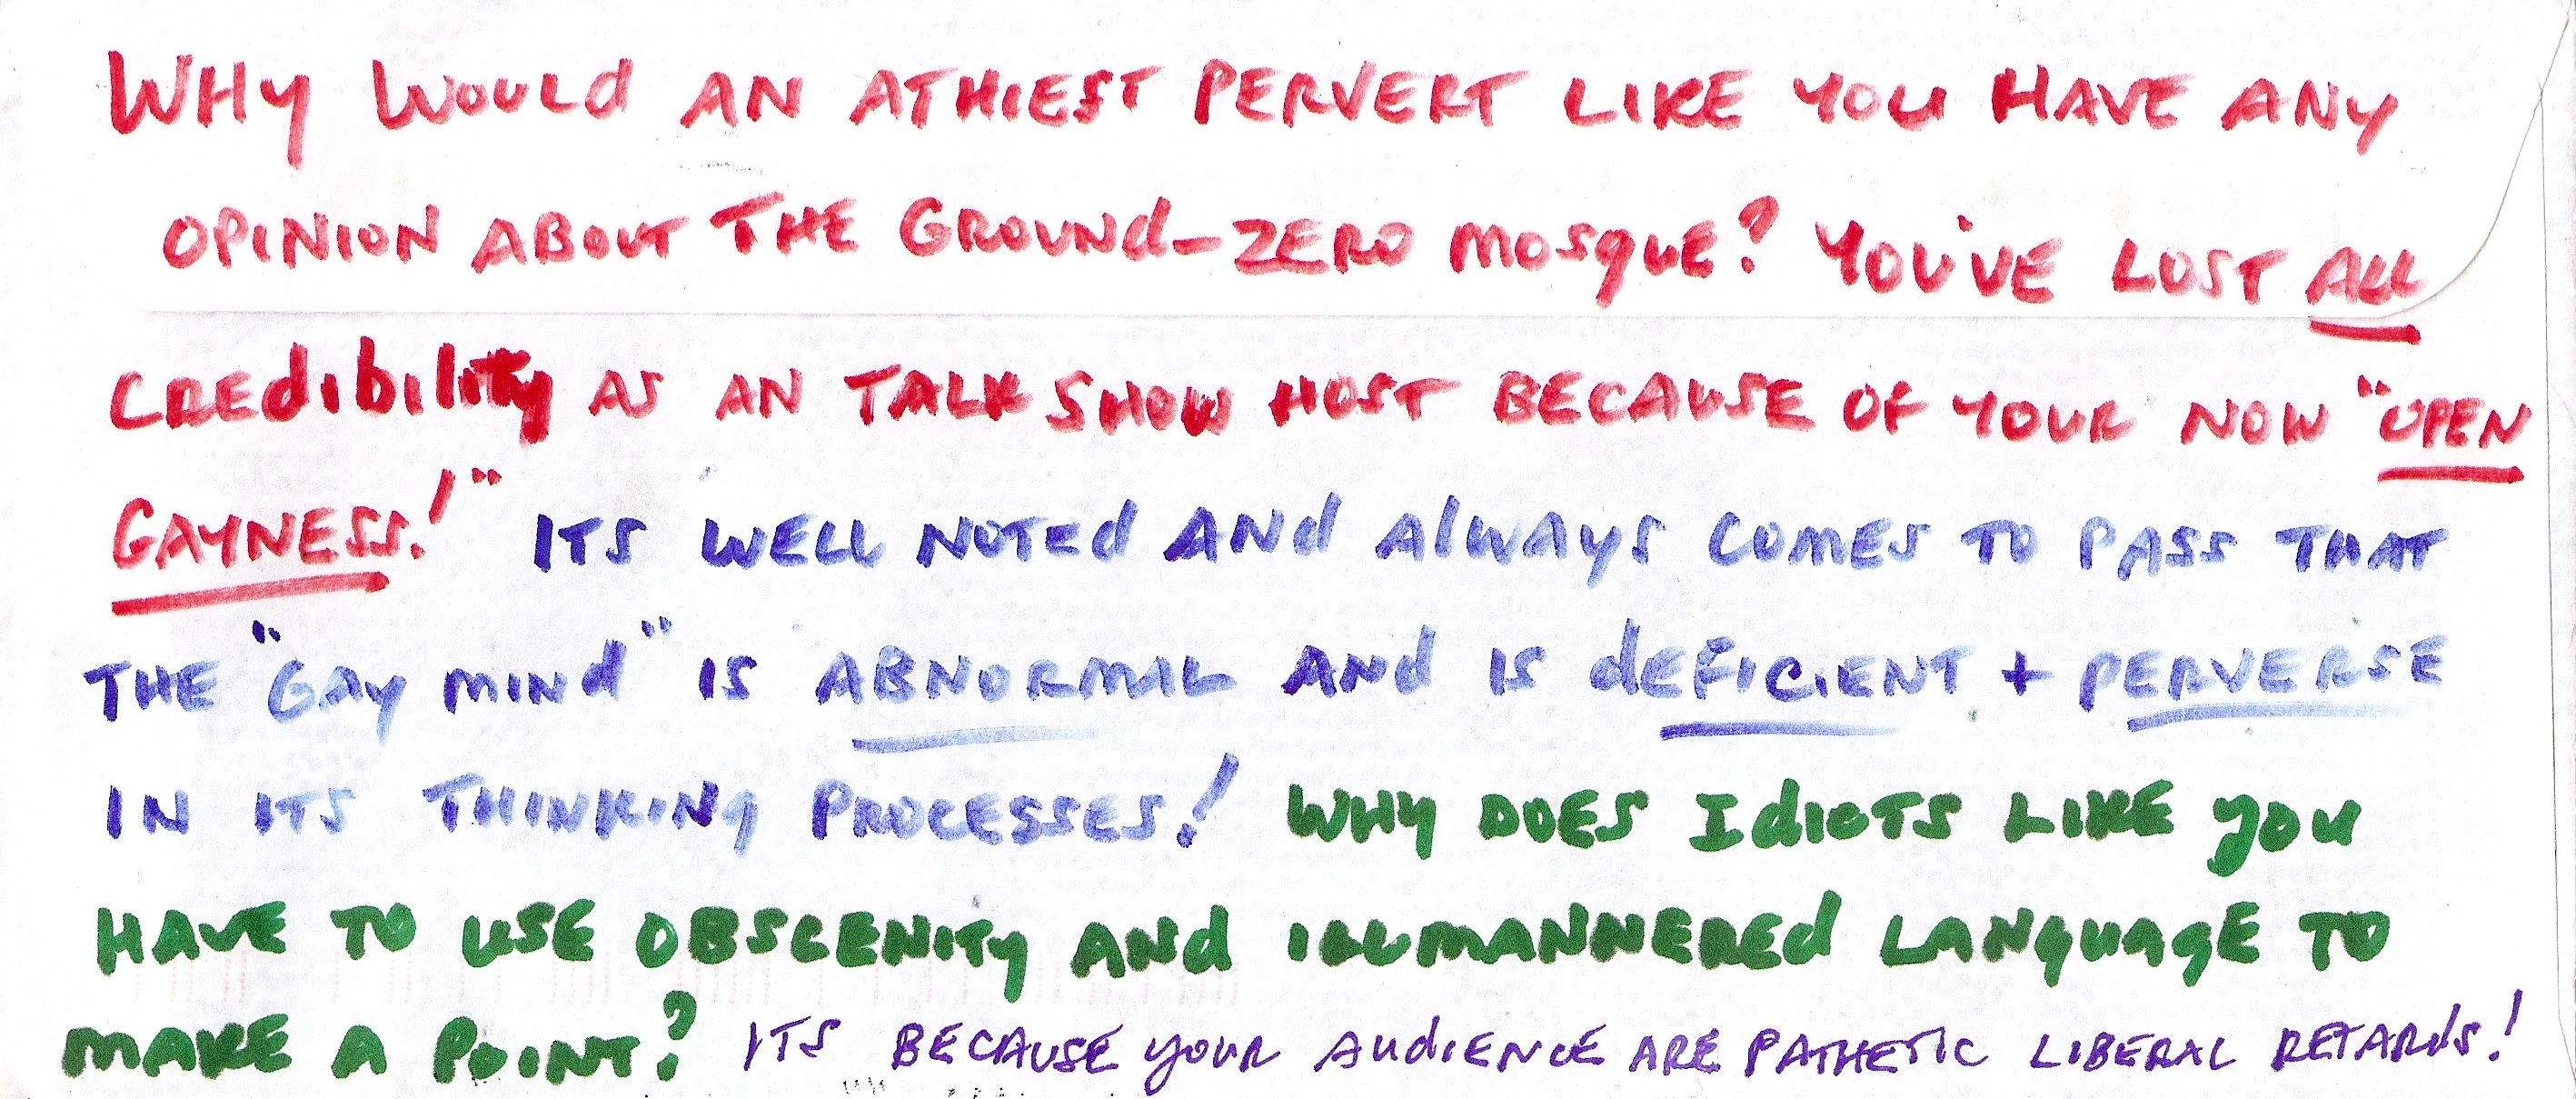 WHY WOULD AN ATHIEST PERVERT LIKE YOU HAVE ANY
OPINION ABOUT THE GROUND-ZERO MOSQUE? YOU'VE LOST ALL
CREDIBILITY AS AN TALK SHOW HOST BECAUSE OF YOUR NOW "OPEN
GAYNESS!" ITS WELL NOTED AND ALWAYS COMES TO PASS THAT
THE "GAY MIND" IS ABNORMAL AND IS DEFICIENT + PERVERSE
IN ITS THINKING PROCESSES! WHY DOES IDIOTS LIKE YOU
HAVE TO USE OBSCENITY AND ILLMANNERED LANGUAGE TO
MAKE A POINT? ITS BECAUSE YOUR AUDIENCE ARE PATHETIC LIBERAL RETARDS!